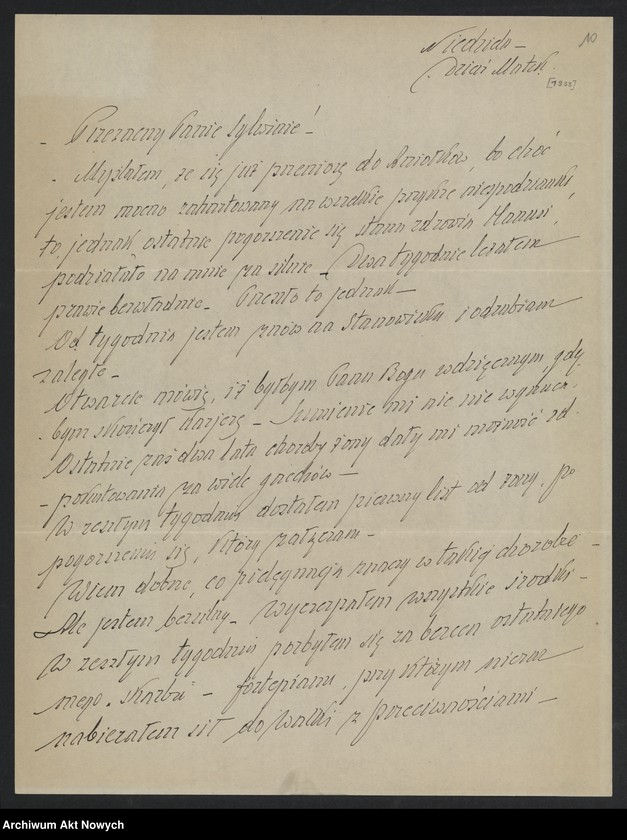 10
Niedziela –
Dzień Matki.
[1933]
– Przezacny Panie Sylwinie!
– Myślałem, że się już przeniosę do Aniołków, bo choć
jestem mocno zahartowany na wszelkie przykre niespodzianki,
to jednak ostatnie pogorszenie się stanu zdrowia Manusi,
podziałało na mnie za silnie – Dwa tygodnie leżałem
prawie bezwładnie – Przeszło to jednak –
Od tygodnia jestem znów na stanowisku i odrabiam
zaległe –
Otwarcie mówię, iż byłbym Panu Bogu wdzięcznym, gdy-
bym skończył karjerę – Sumienie mi nic nie wyrzuca.
Ostatnie zaś dwa lata choroby żony dały mi możność od-
– pokutowania za wiele grzechów –
W zeszłym tygodniu dostałem pierwszy list od żony, po
pogorszeniu się, który załączam –
Wiem dobrze, co pielęgnacja znaczy w takiej chorobie –
Ale jestem bezsilny – Wyczerpałem wszystkie środki –
W zeszłym tygodniu pozbyłem się za bezcen ostatniego
mego „skarbu” – fortepianu, przy którym nieraz
nabierałem sił do walki z przeciwnościami –
Archiwum Akt Nowych